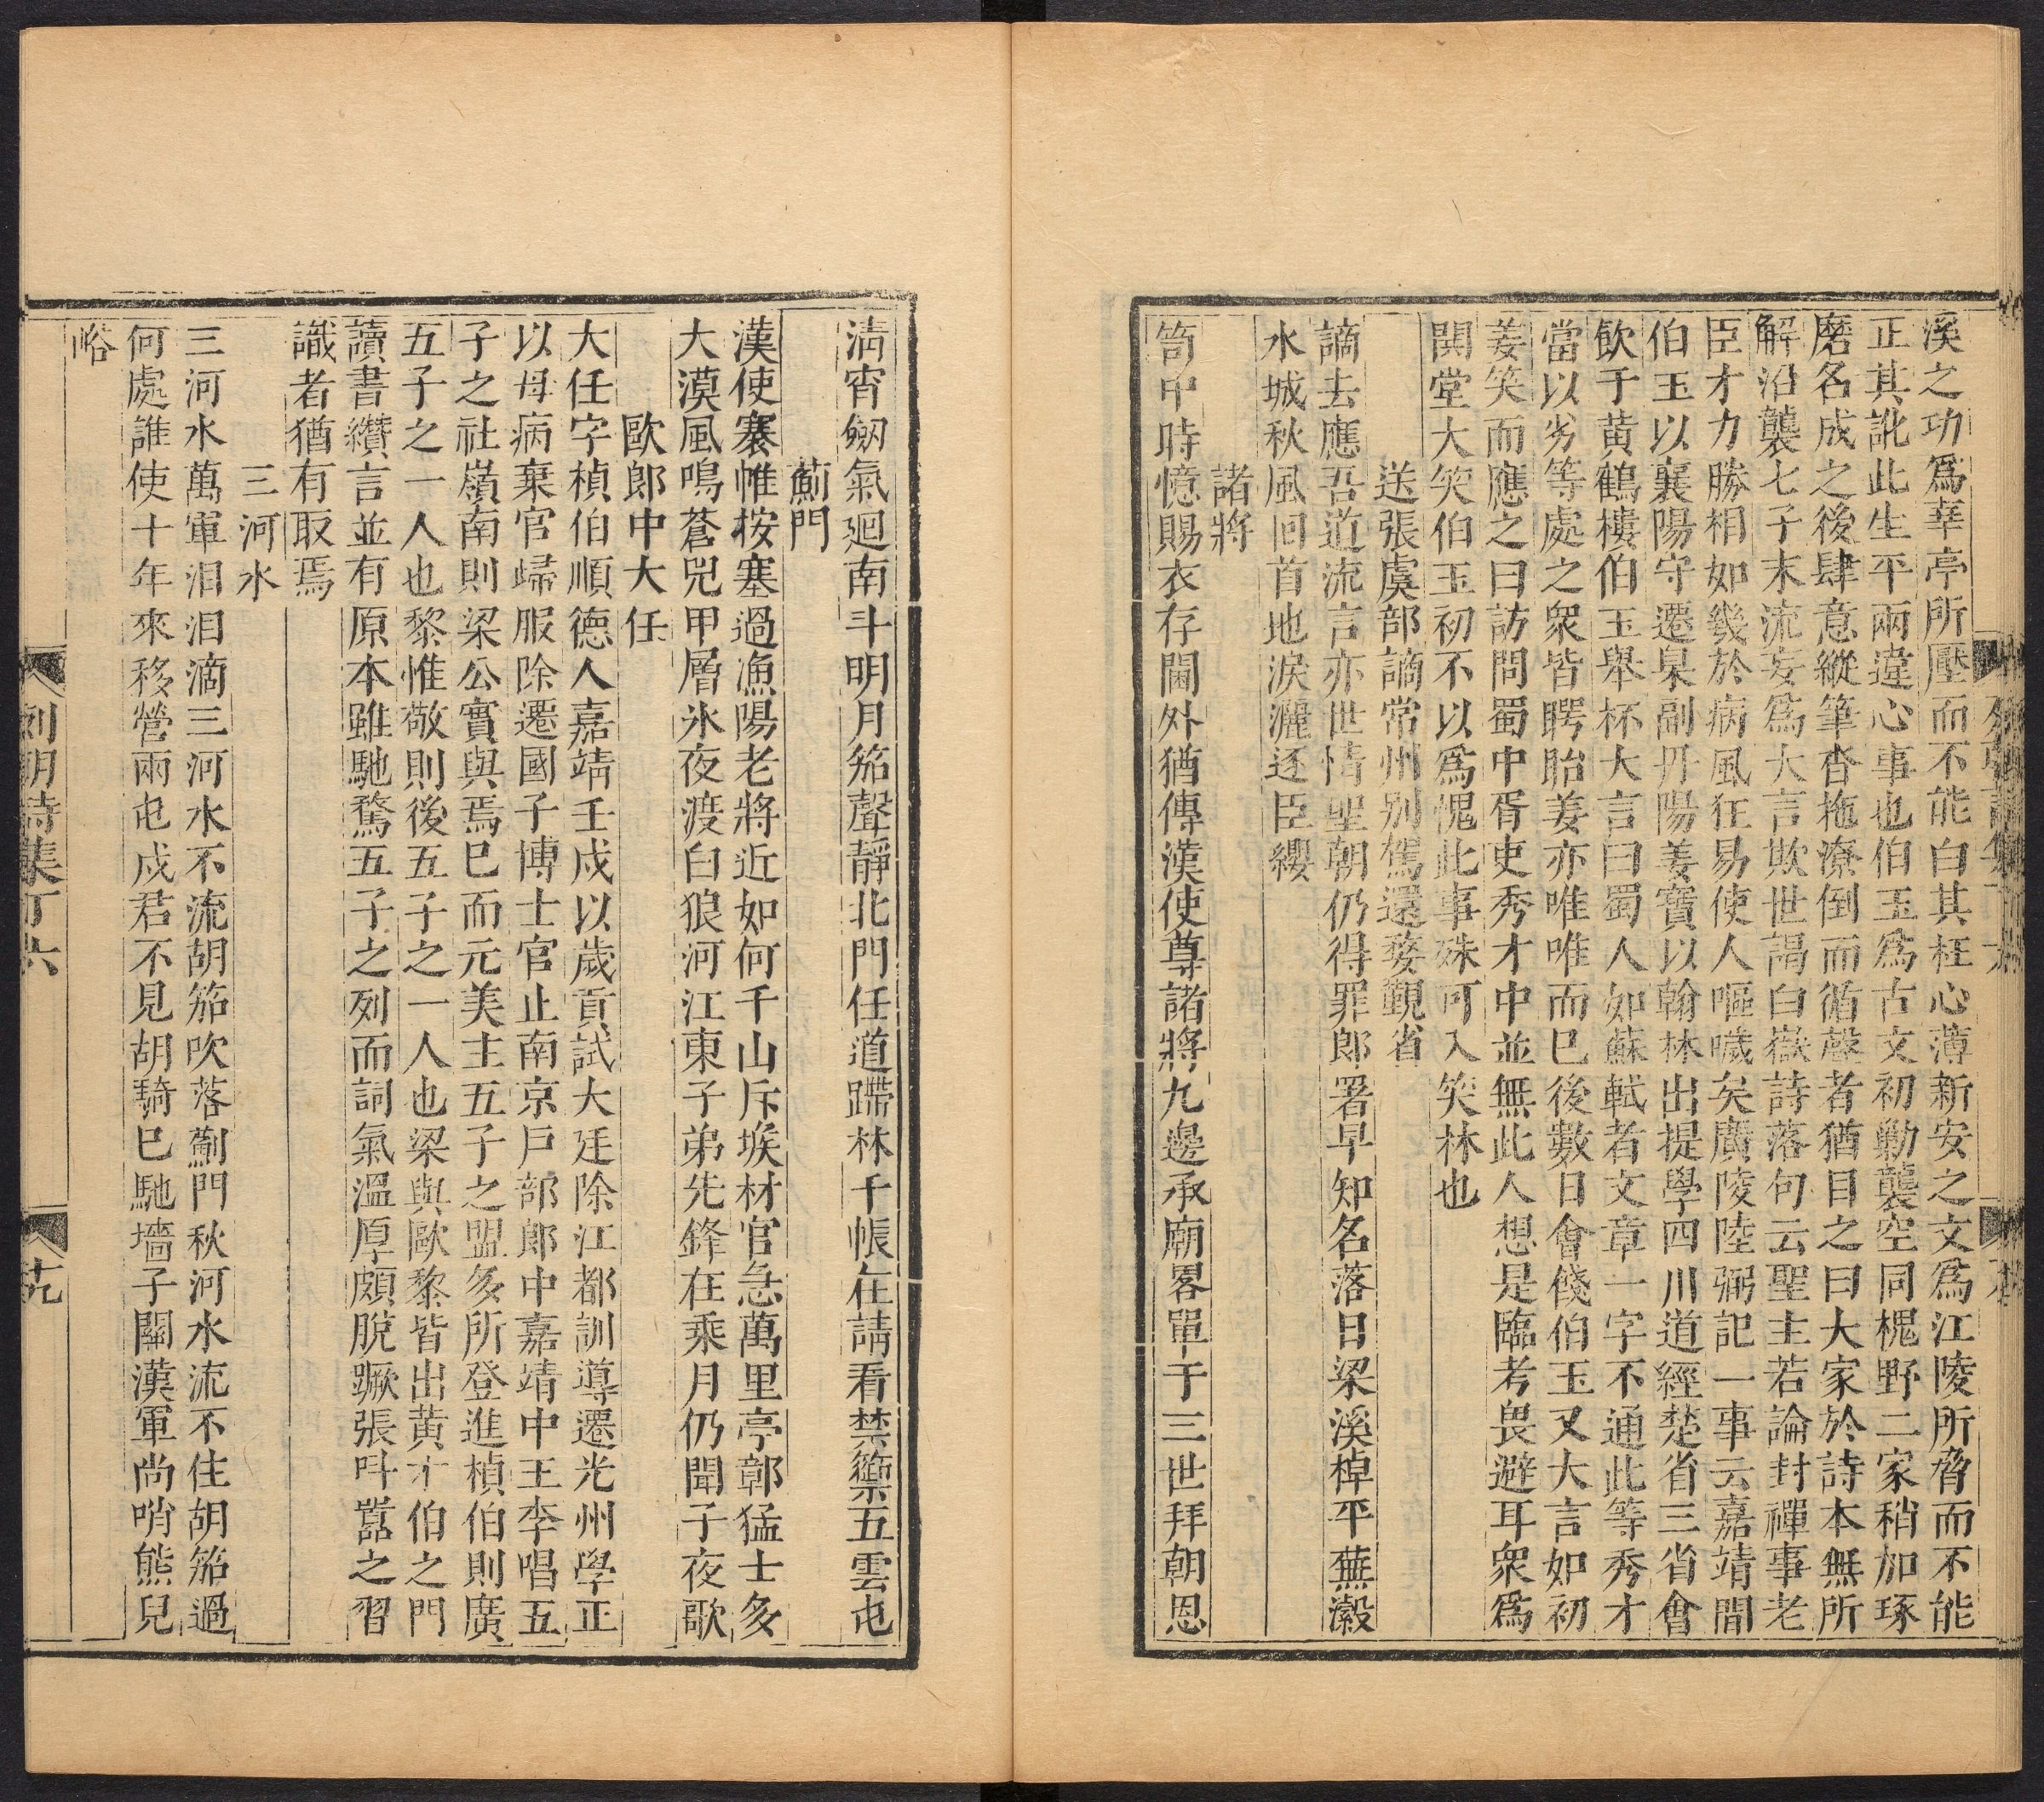 溪之功爲幸亭所壓而不能白其枉心薄新安之文爲江陵所脅而不能
正其訛此生平兩違心事也伯玉爲古文初勦襲空同槐野二家稍加琢
磨名成之後肆意縱筆沓拖潦倒而循聲者猶目之曰大家於詩本無所
解沿襲七子末流妄爲大言欺世謁白嶽詩落句云聖主若論封禪事老
臣才力勝相如幾於病風狂易使人嘔噦矣廣陵陸弼記一事云嘉靖間
伯玉以襄陽守遷臬副丹陽姜寶以翰林出提學四川道經楚省三省會
飲于黄鶴樓伯玉舉杯大言曰蜀人如蘇軾者文章一字不通此等秀才
當以劣等處之衆皆腭眙姜亦唯唯而已後數日會餞伯玉又大言如初
姜笑而應之曰訪問蜀中胥吏秀才中並無此人想是臨考畏避耳衆爲
閧堂大笑伯玉初不以爲愧此事殊可入笑林也
送張虞部謫常州别駕還婺覲省
謫去應吾道流言亦世情聖朝仍得罪郎署早知名落日梁溪棹平蕪瀔
水城秋風回首地淚灑逐臣纓
諸將
笥中時憶賜衣存閫外猶傳漢使尊諸將九邊承廟畧單于三世拜朝恩
清宵劒氣廻南斗明月笳聲靜北門任道蹛林千帳在請看禁籞五雲屯
薊門
漢使褰帷按塞過漁陽老將近如何千山斥堠材官急萬里亭鄣猛士多
大漠風鳴蒼兕甲層氷夜渡白狼河江東子弟先鋒在乘月仍聞子夜歌
歐郎中大任
大任字楨伯順德人嘉靖壬戍以歲貢試大廷除江都訓導遷光州學正
以母病棄官歸服除遷國子博士官止南京戸部郎中嘉靖中王李唱五
子之社嶺南則梁公實與焉巳而元美主五子之盟多所登進楨伯則廣
五子之一人也黎惟敬則後五子之一人也梁與歐黎皆出黄才伯之門
讀書纘言並有原本雖馳騖五子之列而詞氣溫厚頗脫蹶張呌囂之習
識者猶有取焉
三河水
三河水萬軍泪泪滴三河水不流胡笳吹落薊門秋河水流不住胡笳過
何處誰使十年來移營兩屯戍君不見胡騎已馳墻子關漢軍尚哨熊兒
峪
列朝詩集丁六